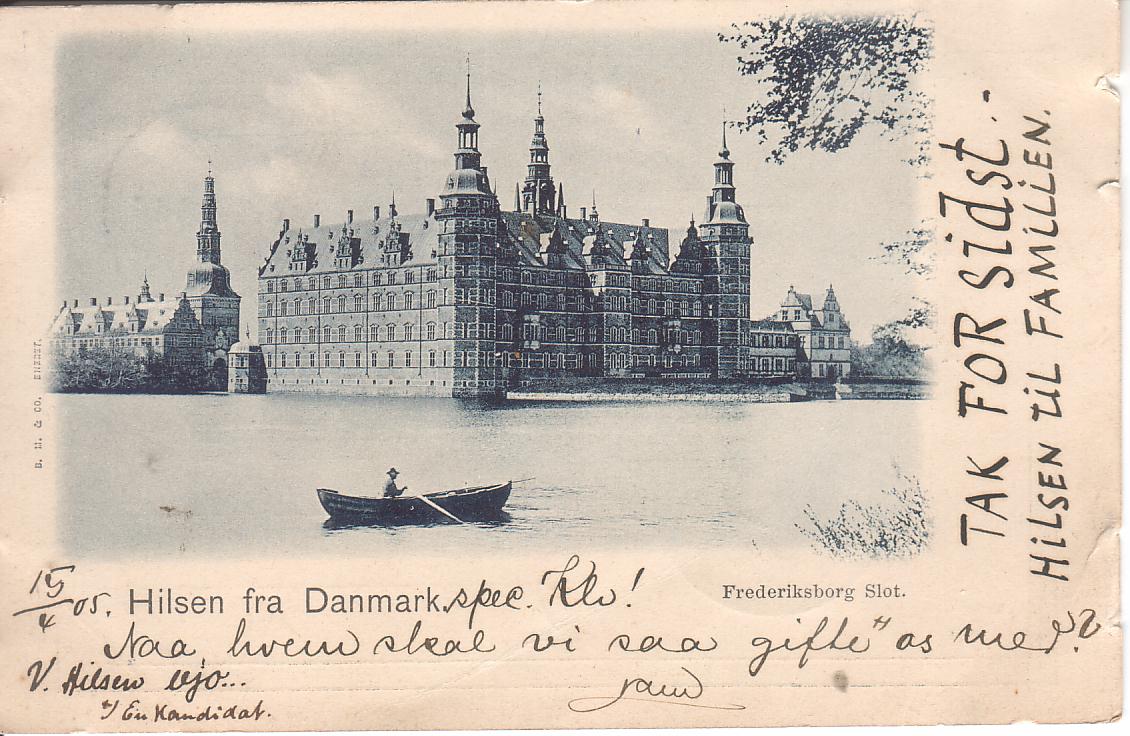 15/4 05. Hilsen fra Danmark. spec. Kbv!
Frederiksborg Slot.
Naa hvem skal vi saa gifte" os med?
V. Hilsen
*/ En Kandidat.
TAK FOR SIDST.-
HILSEN TIL FAMILIEN.